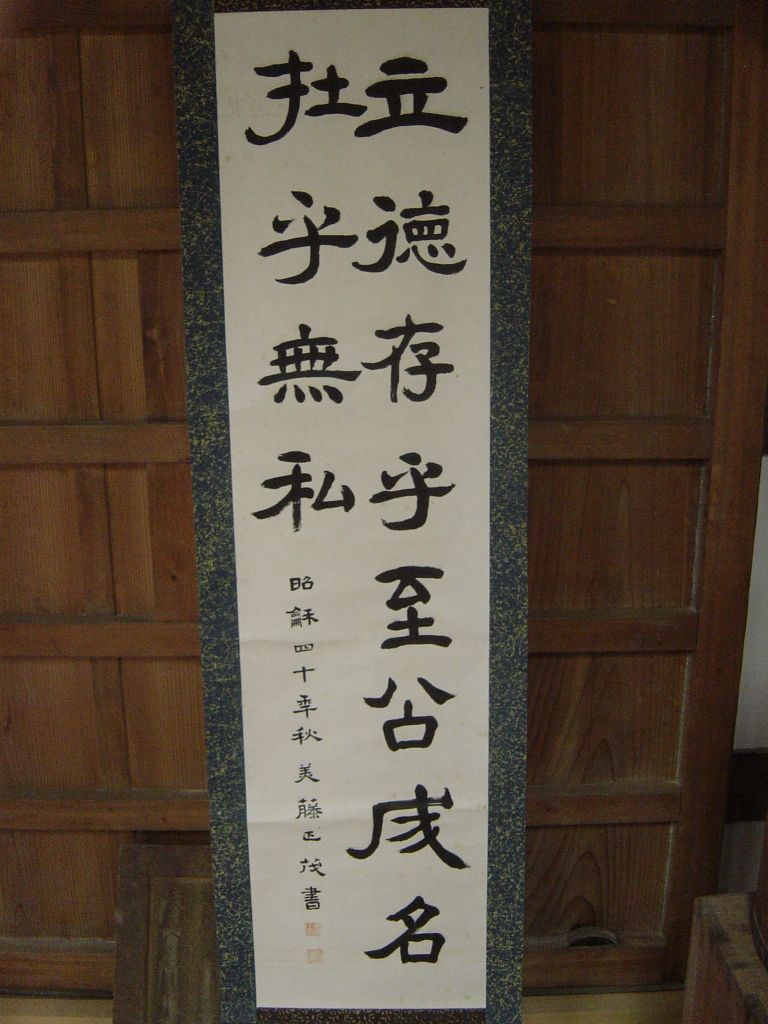 立徳存乎至公成名
扗乎無私
昭龢四十年秋美藤正茂書